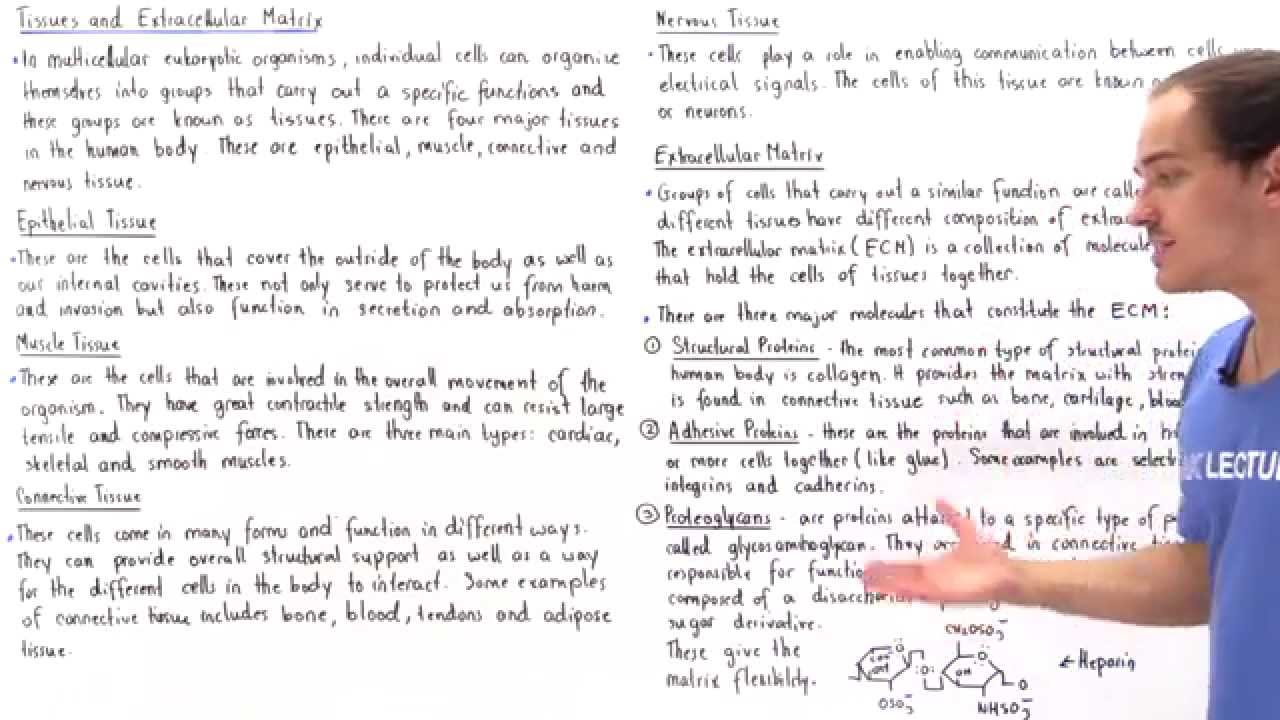 Tissues and Extracellular Matrix
• In multicellular eukaryotic organisms, individual cells can organize
themselves into groups that carry out a specific functions and
these groups are known as tissues. There are four major tissues
in the human body. These are epithelial, muscle, connective and
nervous tissue.
Epithelial Tissue
• These are the cells that cover the outside of the body as well as
our internal cavities. These not only serve to protect us from harm
and invasion but also function in secretion and absorption.
Muscle Tissue
• These are the cells that are involved in the overall movement of the
organism. They have great contractile strength and can resist large
tensile and compressive forces. There are three main types: cardiac,
skeletal and smooth muscles.
Connective Tissue
• These cells come in many forms and function in different ways.
They can provide overall structural support as well as a way
for the different cells in the body to interact. Some examples
of connective tissue includes bone, blood, tendons and adipose
tissue.
Nervous Tissue
• These cells play a role in enabling communication between cells
electrical signals. The cells of this tissue are known
or neurons.
Extracellular Matrix
• Groups of cells that carry out a similar function are
different tissues have different composition of
The extracellular matrix (ECM) is a collection of
that hold the cells of tissues together.
• There are three major molecules that constitute the ECM:
① Structural Proteins - the most common type of structural
human body is collagen. It provides the matrix with
is found in connective tissue such as bone, cartilage,
② Adhesive Proteins - these are the proteins that are involved in
or more cells together (like glue). Some examples are
integrins and cadherins.
③ Proteoglycans - are proteins to a specific type of
called glycosaminoglycan. They in connective
responsible for
composed of a
sugar derivative.
These give the
matrix flexibility.
CH₂OSO₃⁻
O O
OH O OH O
OSO₃⁻ NHSO₃⁻
← Heparin
LECTU